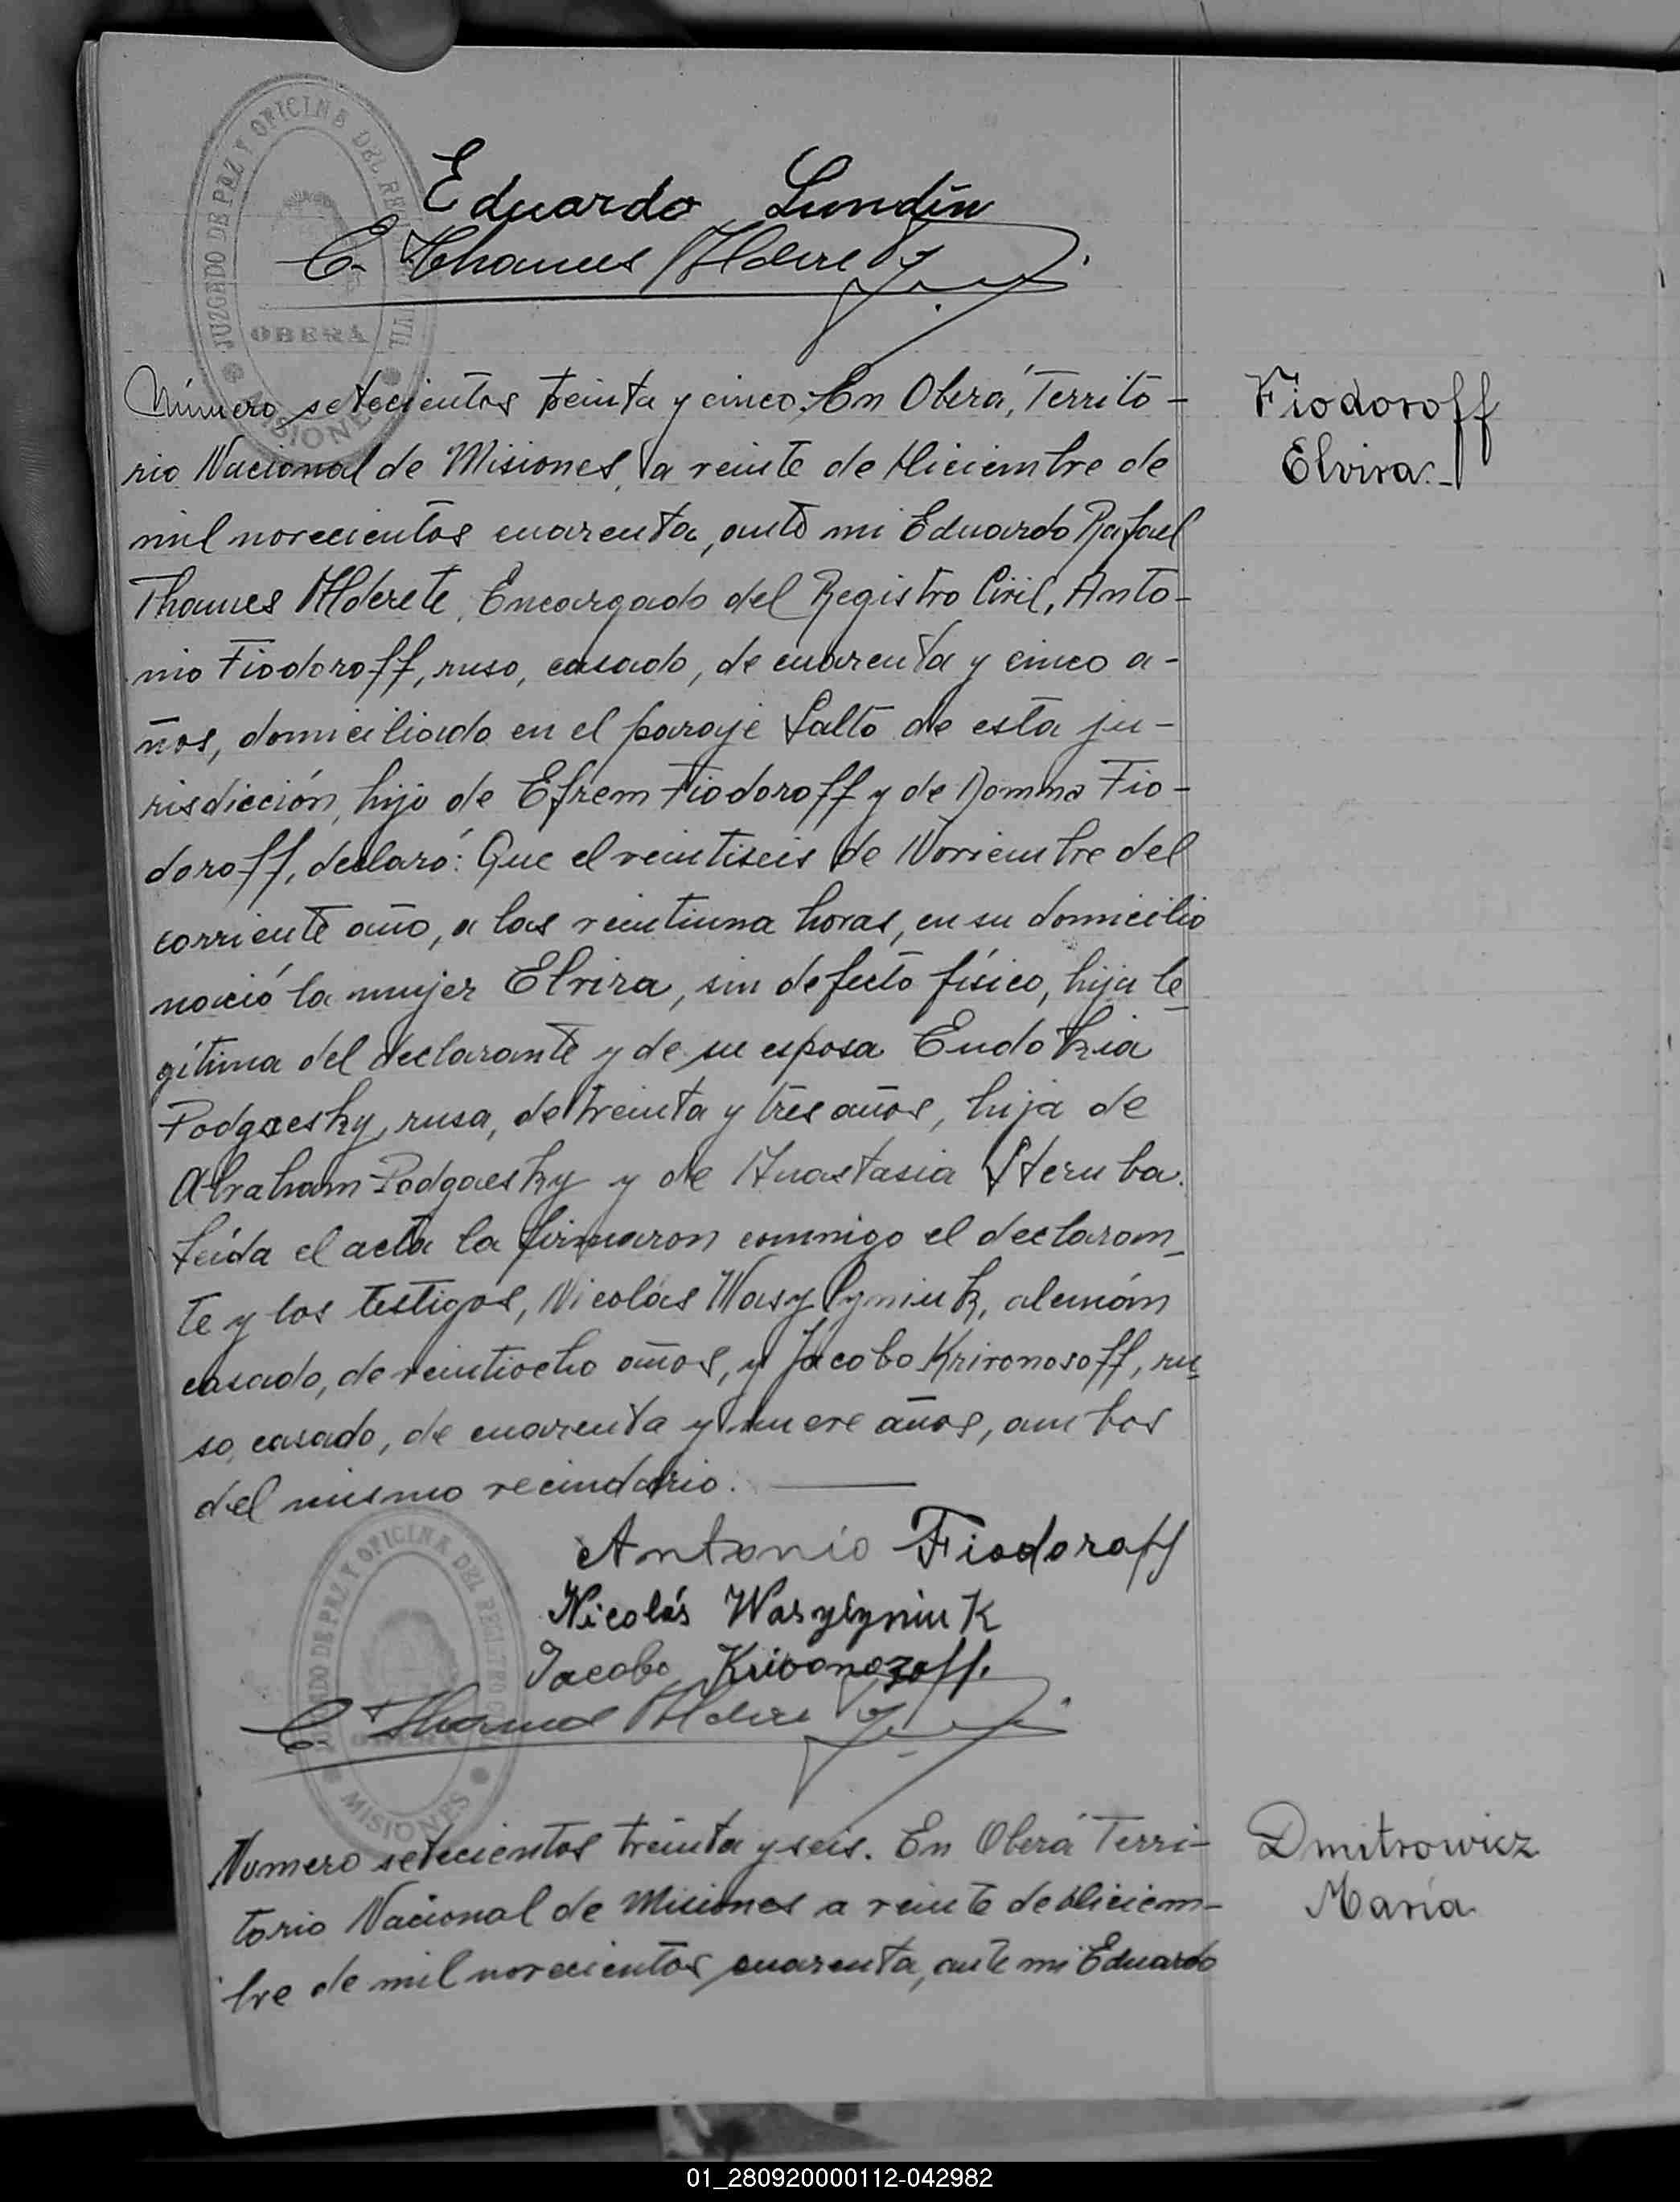 JUZGADO DE PAZ Y OFICINA DEL REGISTRO CIVIL
OBERÁ
MISIONES
Eduardo Lundín
E. Thames Aldere
Número setecientos treinta y cinco. En Oberá, Territo-
rio Nacional de Misiones, a veinte de Diciembre de
mil novecientos cuarenta, ante mi Eduardo Rafael
Thames Alderete, Encargado del Registro Civil, Anto-
nio Fiodoroff, ruso, casado, de cuarenta y cinco a-
ños, domiciliado en el paraje Salto de esta ju-
risdicción, hijo de Efrem Fiodoroff y de Domma Fio-
doroff, declaró: Que el veintiseis de Noviembre del
corriente año, a las veintiuna horas, en su domicilio
nació la mujer Elvira, sin defecto físico, hija le-
gítima del declarante y de su esposa Eudokia
Podgaesky, rusa, de treinta y tres años, hija de
Abraham Podgaesky y de Anastasia Steruba.
Leída el acta la firmaron conmigo el declaran-
te y los testigos, Nicolás Wasylyniuk, alemán
casado, de veintiocho años, y Jacobo Krivonosoff, ru-
so, casado, de cuarenta y nueve años, ambos
del mismo vecindario.
Fiodoroff
Elvira.-
Antonio Fiodoroff
Nicolás Wasylyniuk
Jacobo Krivonozoff.
E. Thames Aldere
JUZGADO DE PAZ Y OFICINA DEL REGISTRO
MISIONES
Numero setecientos treinta y seis. En Oberá Terri-
torio Nacional de Misiones a veinte de Diciem-
bre de mil novecientos cuarenta, ante mi Eduardo
Dmitrowicz
María
01_280920000112-042982